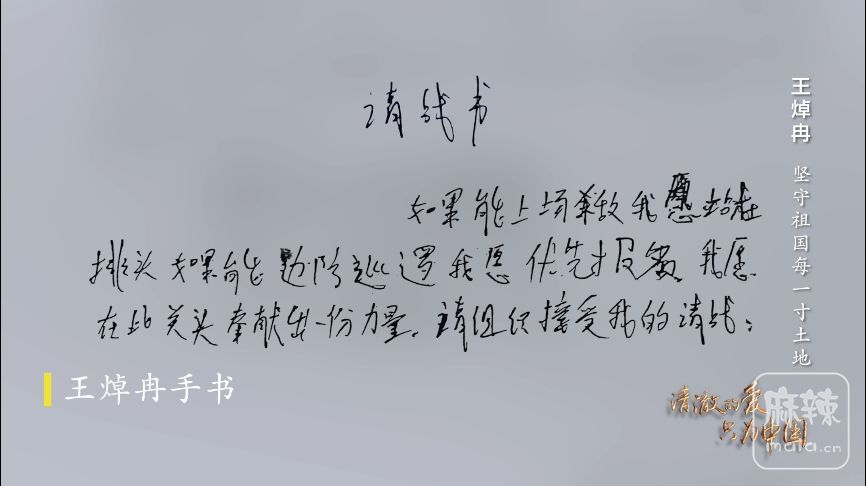 请战书
如果能上场杀敌我愿站在
排头如果能边防巡逻我愿优先报名。我愿
在此关头奉献出一份力量。请组织接受我的请战:
王焯冉手书
王焯冉 坚守祖国每一寸土地
清澈的爱
只为中国
麻辣
mala.cn